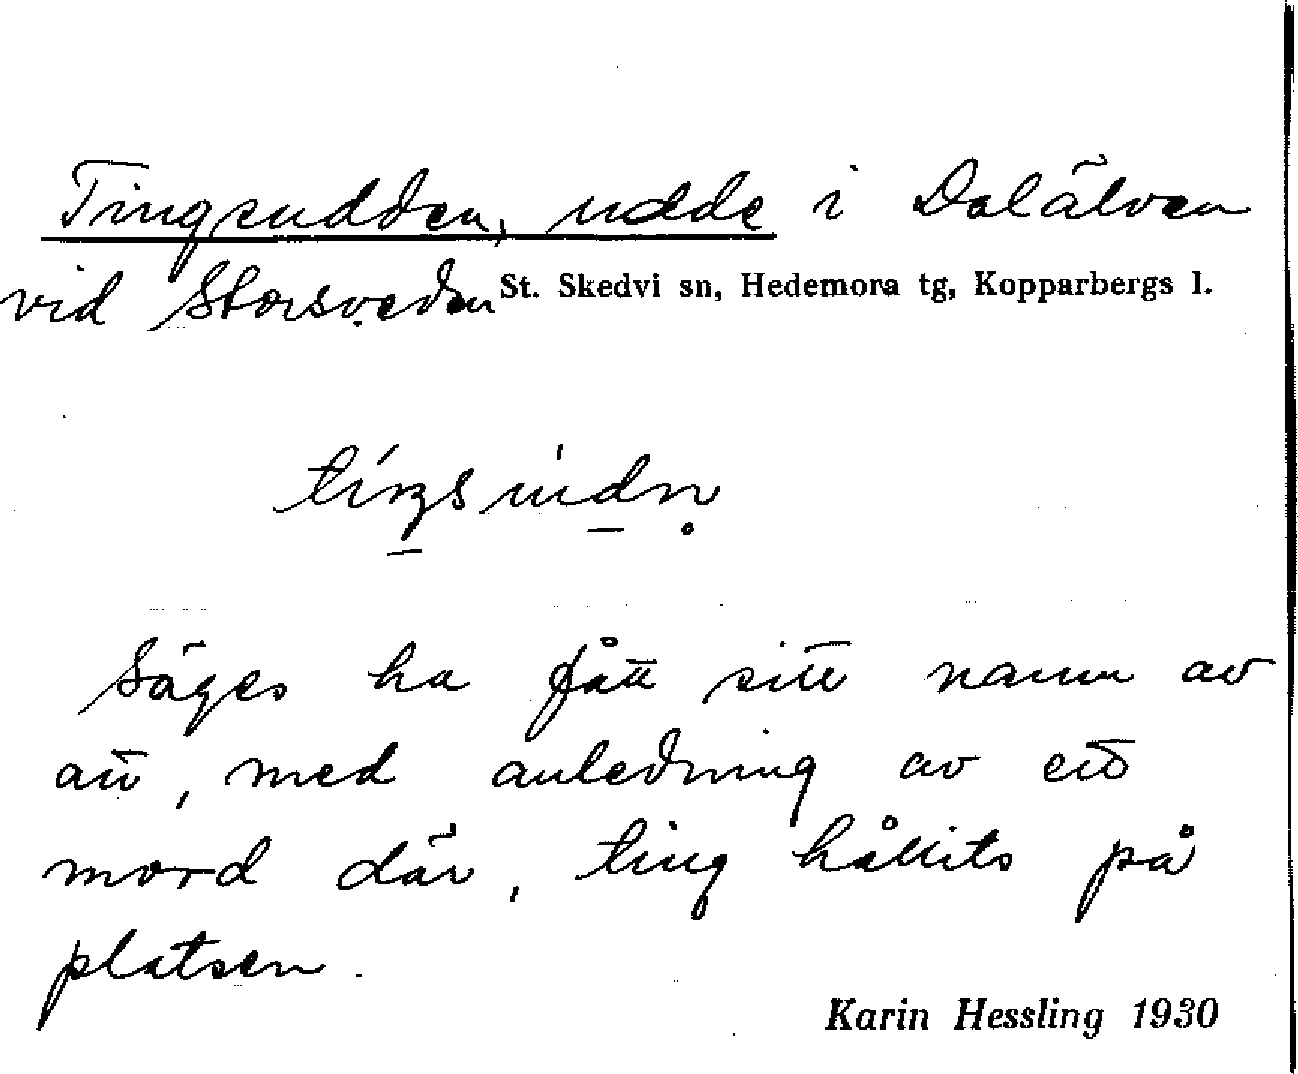 Tingsudden, udde i Dalälven
vid Storsveden St. Skedvi sn, Hedemora tg, Kopparbergs l.
Säges ha fått sitt namn av
att, med anledning av ett
mord där, ting hållits på
platsen.
Karin Hessling 1930